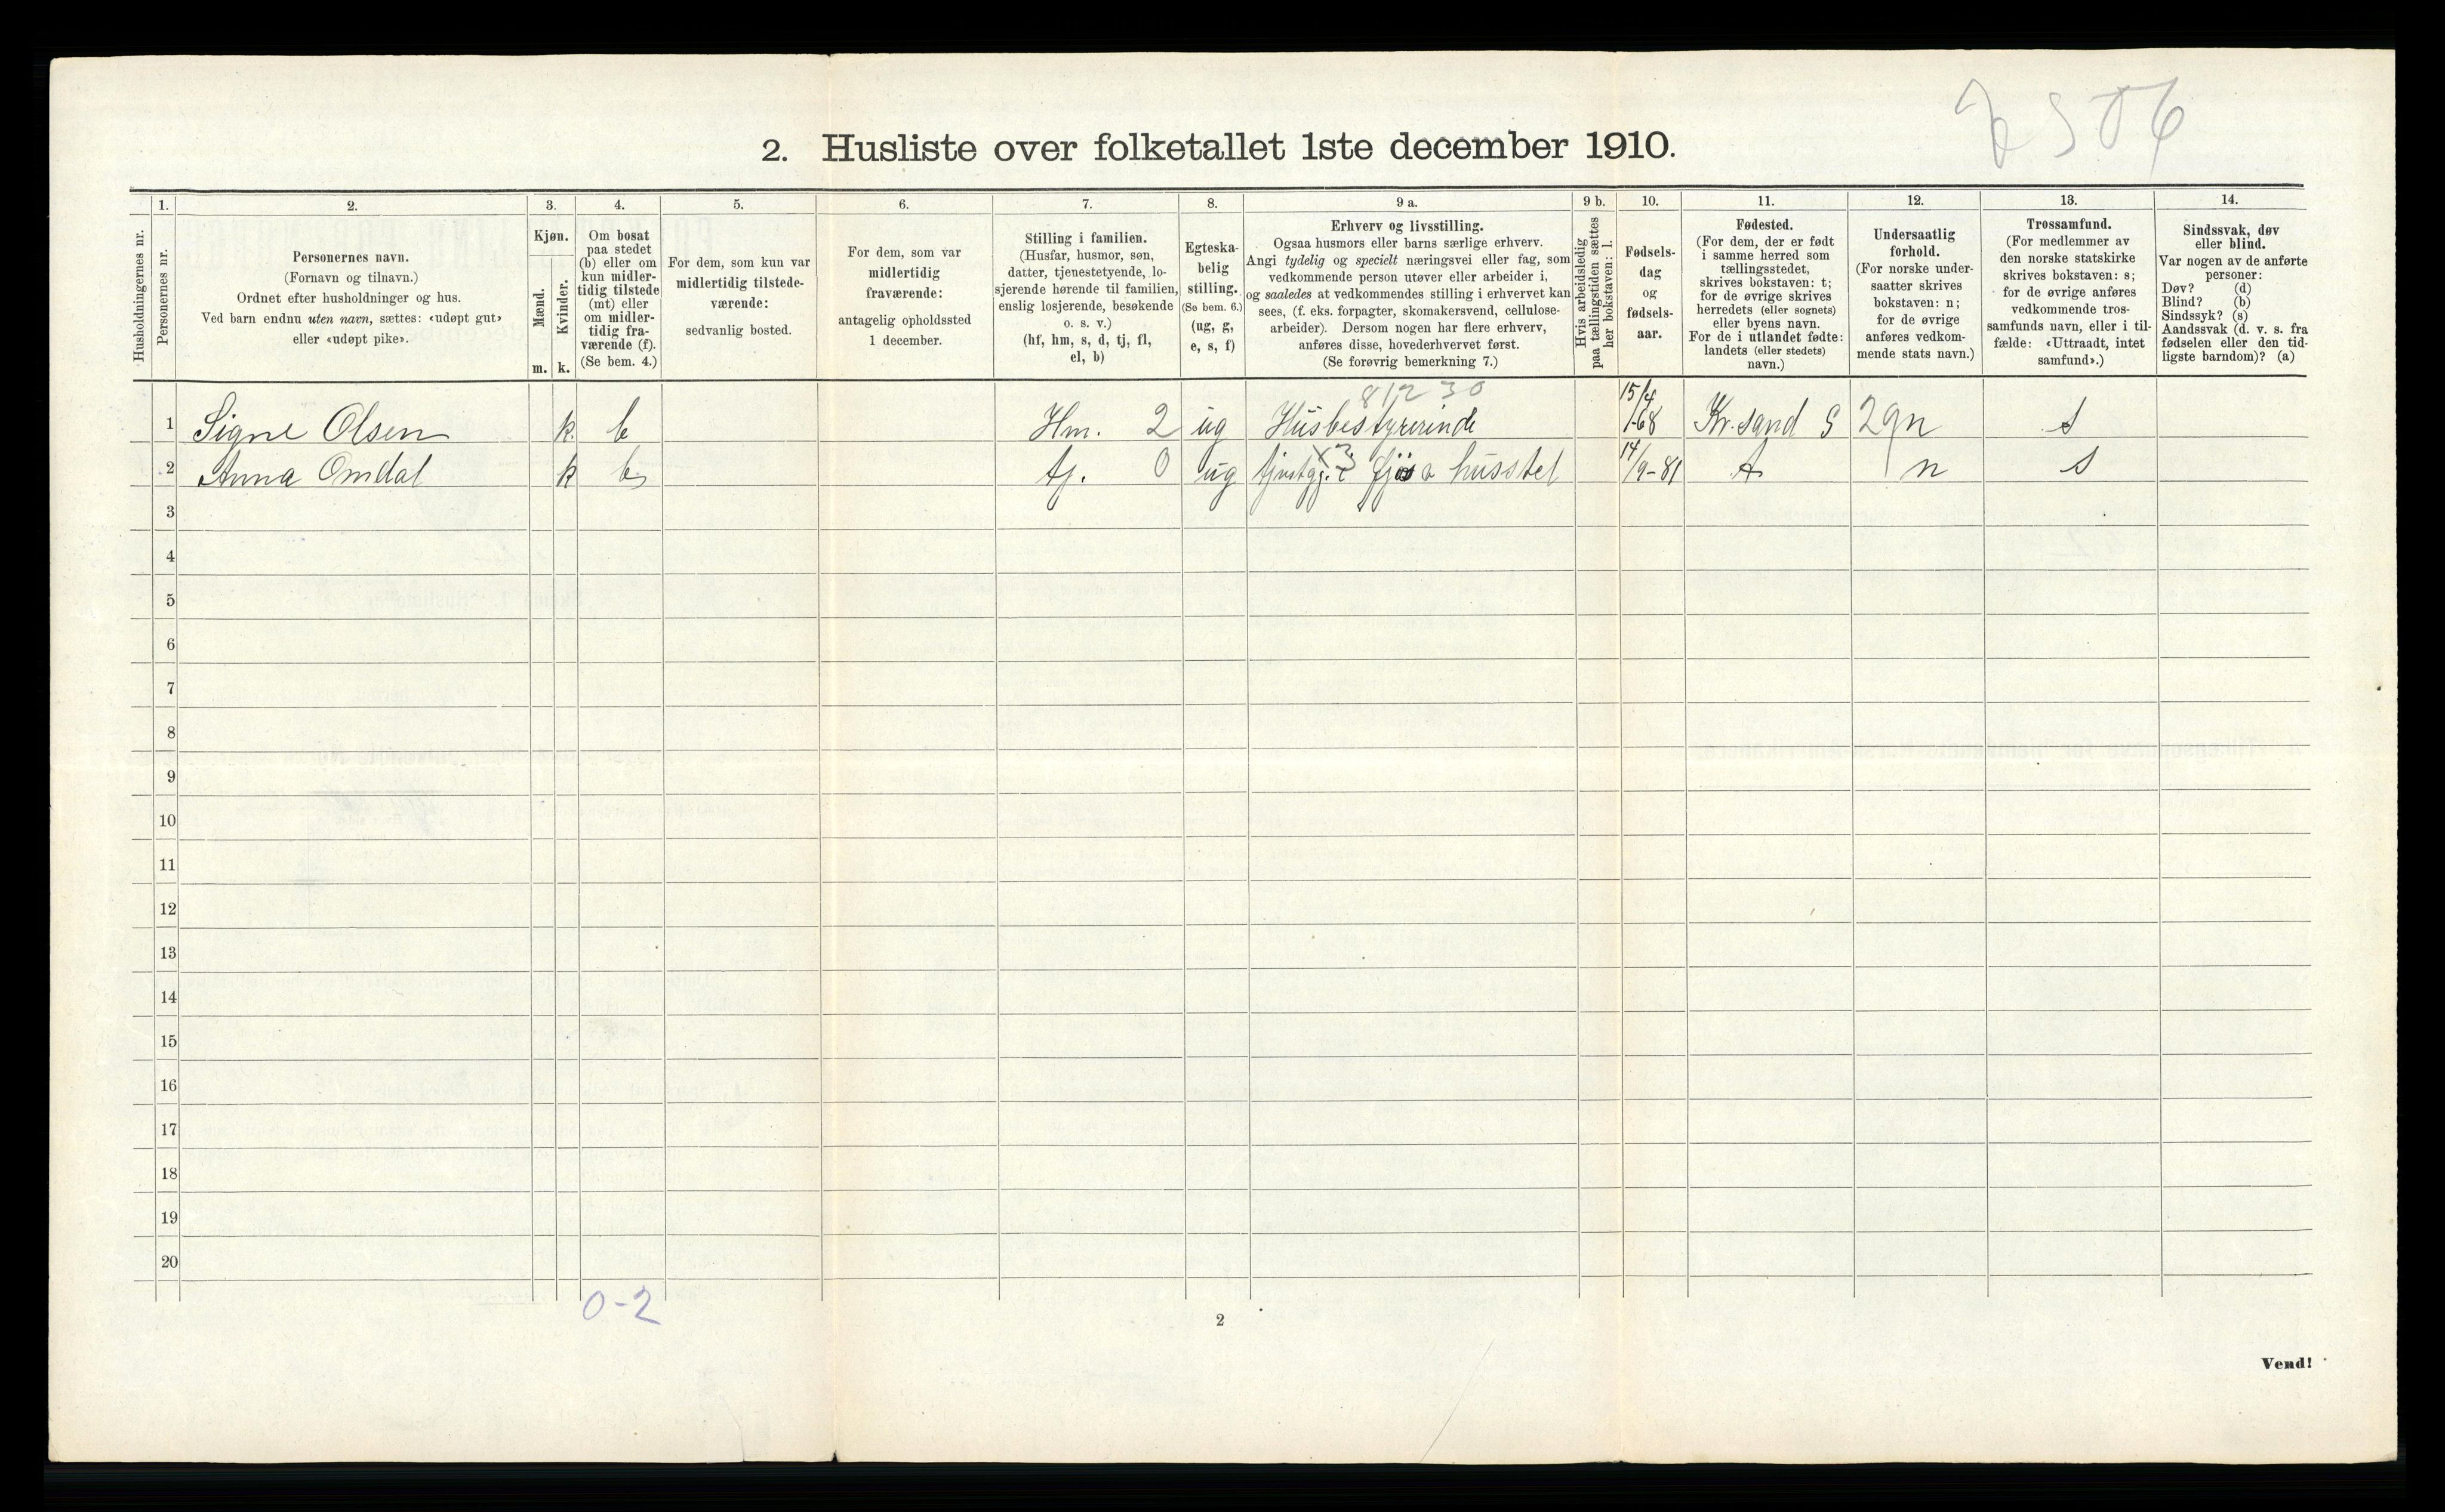 2506
2. Husliste over folketallet 1ste december 1910.
1. 2. 3. 4. 5. 6. 7. 8. 9 a. 9 b. 10. 11. 12. 13. 14.
Husholdningernes nr.
Personernes nr.
Personernes navn.
(Fornavn og tilnavn.)
Ordnet efter husholdninger og hus.
Ved barn endnu uten navn, sættes: «udøpt gut»
eller «udøpt pike».
Kjøn.
Mænd.
Kvinder.
m. k.
Om bosat
paa stedet
(b) eller om
kun midler-
tidig tilstede
(mt) eller
om midler-
tidig fra-
værende (f).
(Se bem. 4.)
For dem, som kun var
midlertidig tilstede-
værende:
sedvanlig bosted.
For dem, som var
midlertidig
fraværende:
antagelig opholdssted
1 december.
Stilling i familien.
(Husfar, husmor, søn,
datter, tjenestetyende, lo-
sjerende hørende til familien,
enslig losjerende, besøkende
o. s. v.)
(hf, hm, s, d, tj, fl,
el, b)
Egteska-
belig
stilling.
(Se bem. 6.)
(ug, g,
e, s, f)
Erhverv og livsstilling.
Ogsaa husmors eller barns særlige erhverv.
Angi tydelig og specielt næringsvei eller fag, som
vedkommende person utøver eller arbeider i,
og saaledes at vedkommendes stilling i erhvervet kan
sees, (f. eks. forpagter, skomakersvend, cellulose-
arbeider). Dersom nogen har flere erhverv,
anføres disse, hovederhvervet først.
(Se forøvrig bemerkning 7.)
Hvis arbeidsledig
paa tællingstiden sættes
her bokstaven: l.
Fødsels-
dag
og
fødsels-
aar.
Fødested.
(For dem, der er født
i samme herred som
tællingsstedet,
skrives bokstaven: t;
for de øvrige skrives
herredets (eller sognets)
eller byens navn.
For de i utlandet fødte:
landets (eller stedets)
navn.)
Undersaatlig
forhold.
(For norske under-
saatter skrives
bokstaven: n;
for de øvrige
anføres vedkom-
mende stats navn.)
Trossamfund.
(For medlemmer av
den norske statskirke
skrives bokstaven: s;
for de øvrige anføres
vedkommende tros-
samfunds navn, eller i til-
fælde: «Uttraadt, intet
samfund».)
Sindssvak, døv
eller blind.
Var nogen av de anførte
personer:
Døv? (d)
Blind? (b)
Sindssyk? (s)
Aandssvak (d. v. s. fra
fødselen eller den tid-
ligste barndom)? (a)
81230
1 Signe Olsen k. b Hm. 2 ug Husbestyrerinde 15/4 -68 Kr.sand S 29 n s
2 Anna Omdal k b tj. 0 ug x 3 fjøs o husstel 14/9-81 t n s
3
4
5
6
7
8
9
10
11
12
13
14
15
16
17
18
19
20
0-2
2
Vend!